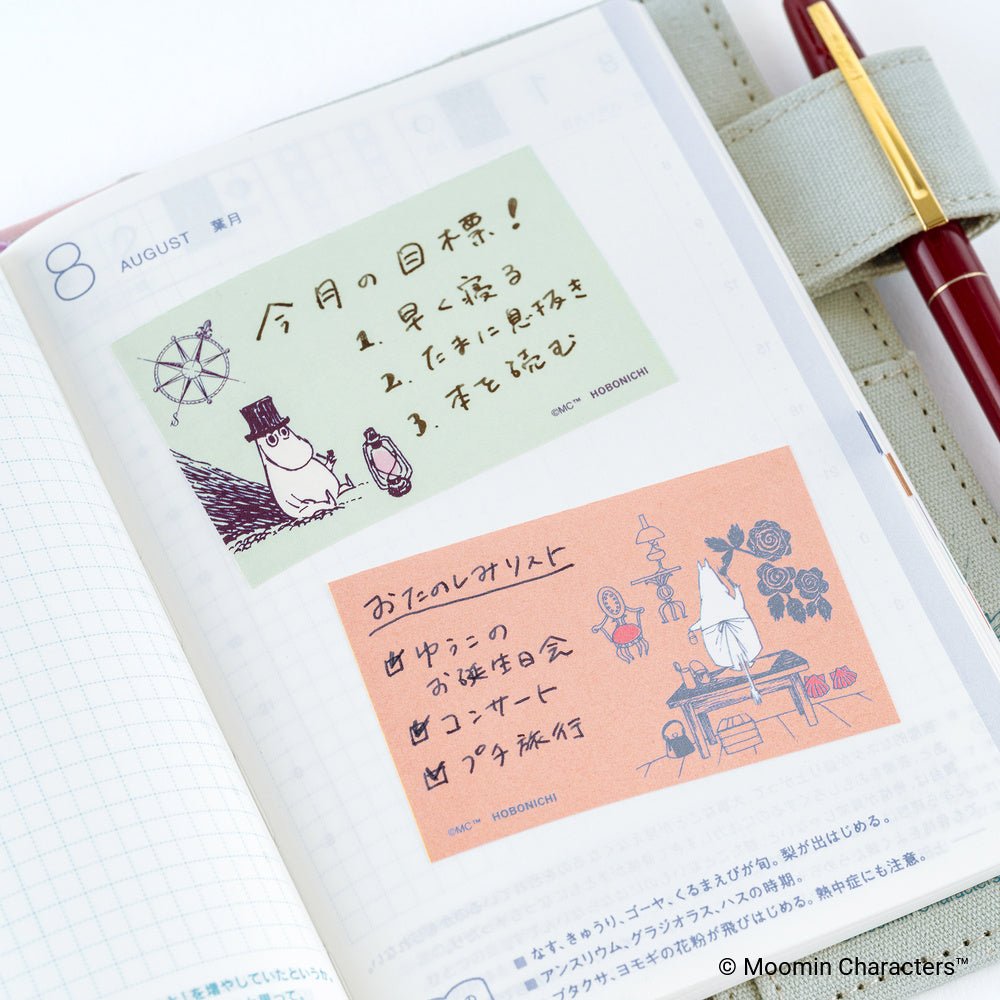 8 AUGUST 葉月
今月の目標！
1. 早く寝る
2. たまに息抜き
3. 本を読む
©MC™ HOBONICHI
おたのしみリスト
ゆうこの
お誕生日会
コンサート
プチ旅行
©MC™ HOBONICHI
■なす、きゅうり、ゴーヤ、くるまえびが旬。梨が出はじめる。
■アンスリウム、グラジオラス、ハスの時期。
ブタクサ、ヨモギの花粉が飛びはじめる。熱中症にも注意。
を増やしていたというか、
© Moomin Characters™